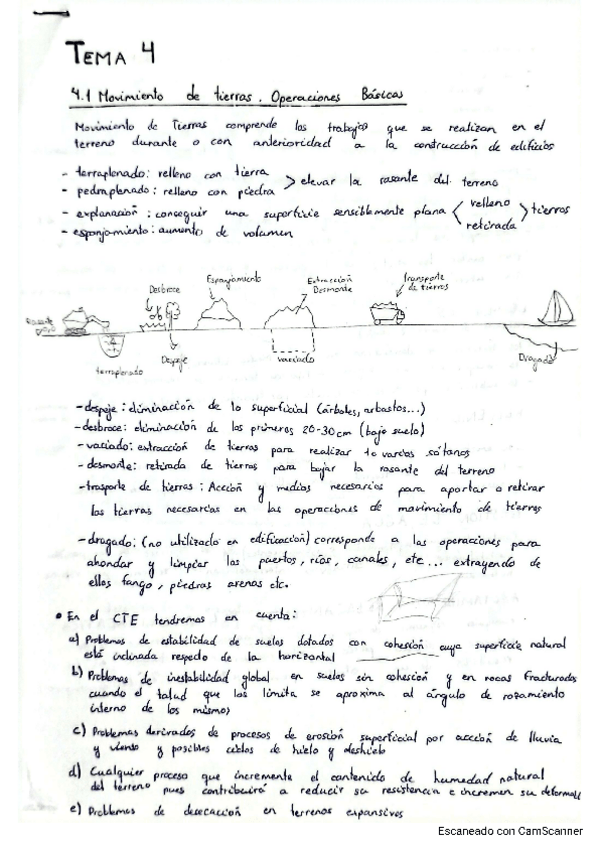 TEMA 4
4.1 Movimiento de tierras. Operaciones Básicas
Movimiento de Tierras comprende los trabajos que se realizan en el
terreno durante o con anterioridad a la construcción de edificios
- terraplenado: relleno con tierra
- pedraplenado: relleno con piedra
> elevar la rasante del terreno
- explanación: conseguir una superficie sensiblemente plana < relleno
retirada > tierras
- esponjamiento: aumento de volumen
Desbroce
Esponjamiento
Extracción
Desmonte
Transporte
de tierras
Rasante
terraplenado
Despeje
vaciado
Dragado
- despeje: eliminación de lo superficial (árboles, arbustos...)
- desbroce: eliminación de los primeros 20-30cm (bajo suelo)
- vaciado: extracción de tierras para realizar 1 o varios sótanos
- desmonte: retirada de tierras para bajar la rasante del terreno
- trasporte de tierras: Acción y medios necesarios para aportar o retirar
las tierras necesarias en las operaciones de movimiento de tierras
- dragado: (no utilizado en edificación) corresponde a las operaciones para
ahondar y limpiar los puertos, ríos, canales, etc... extrayendo de
ellos fango, piedras arenas etc.
• En el CTE tendremos en cuenta:
a) Problemas de estabilidad de suelos dotados con cohesión cuya superficie natural
está inclinada respecto de la horizontal
b) Problemas de inestabilidad global en suelos sin cohesión y en rocas fracturadas
cuando el talud que los limita se aproxima al ángulo de rozamiento
interno de los mismos
c) Problemas derivados de procesos de erosión superficial por acción de lluvia
y viento y posibles ciclos de hielo y deshielo
d) Cualquier proceso que incremente el contenido de humedad natural
del terreno pues contribuirá a reducir su resistencia e incremen su deformab
e) Problemas de desecación en terrenos expansivos
Escaneado con CamScanner